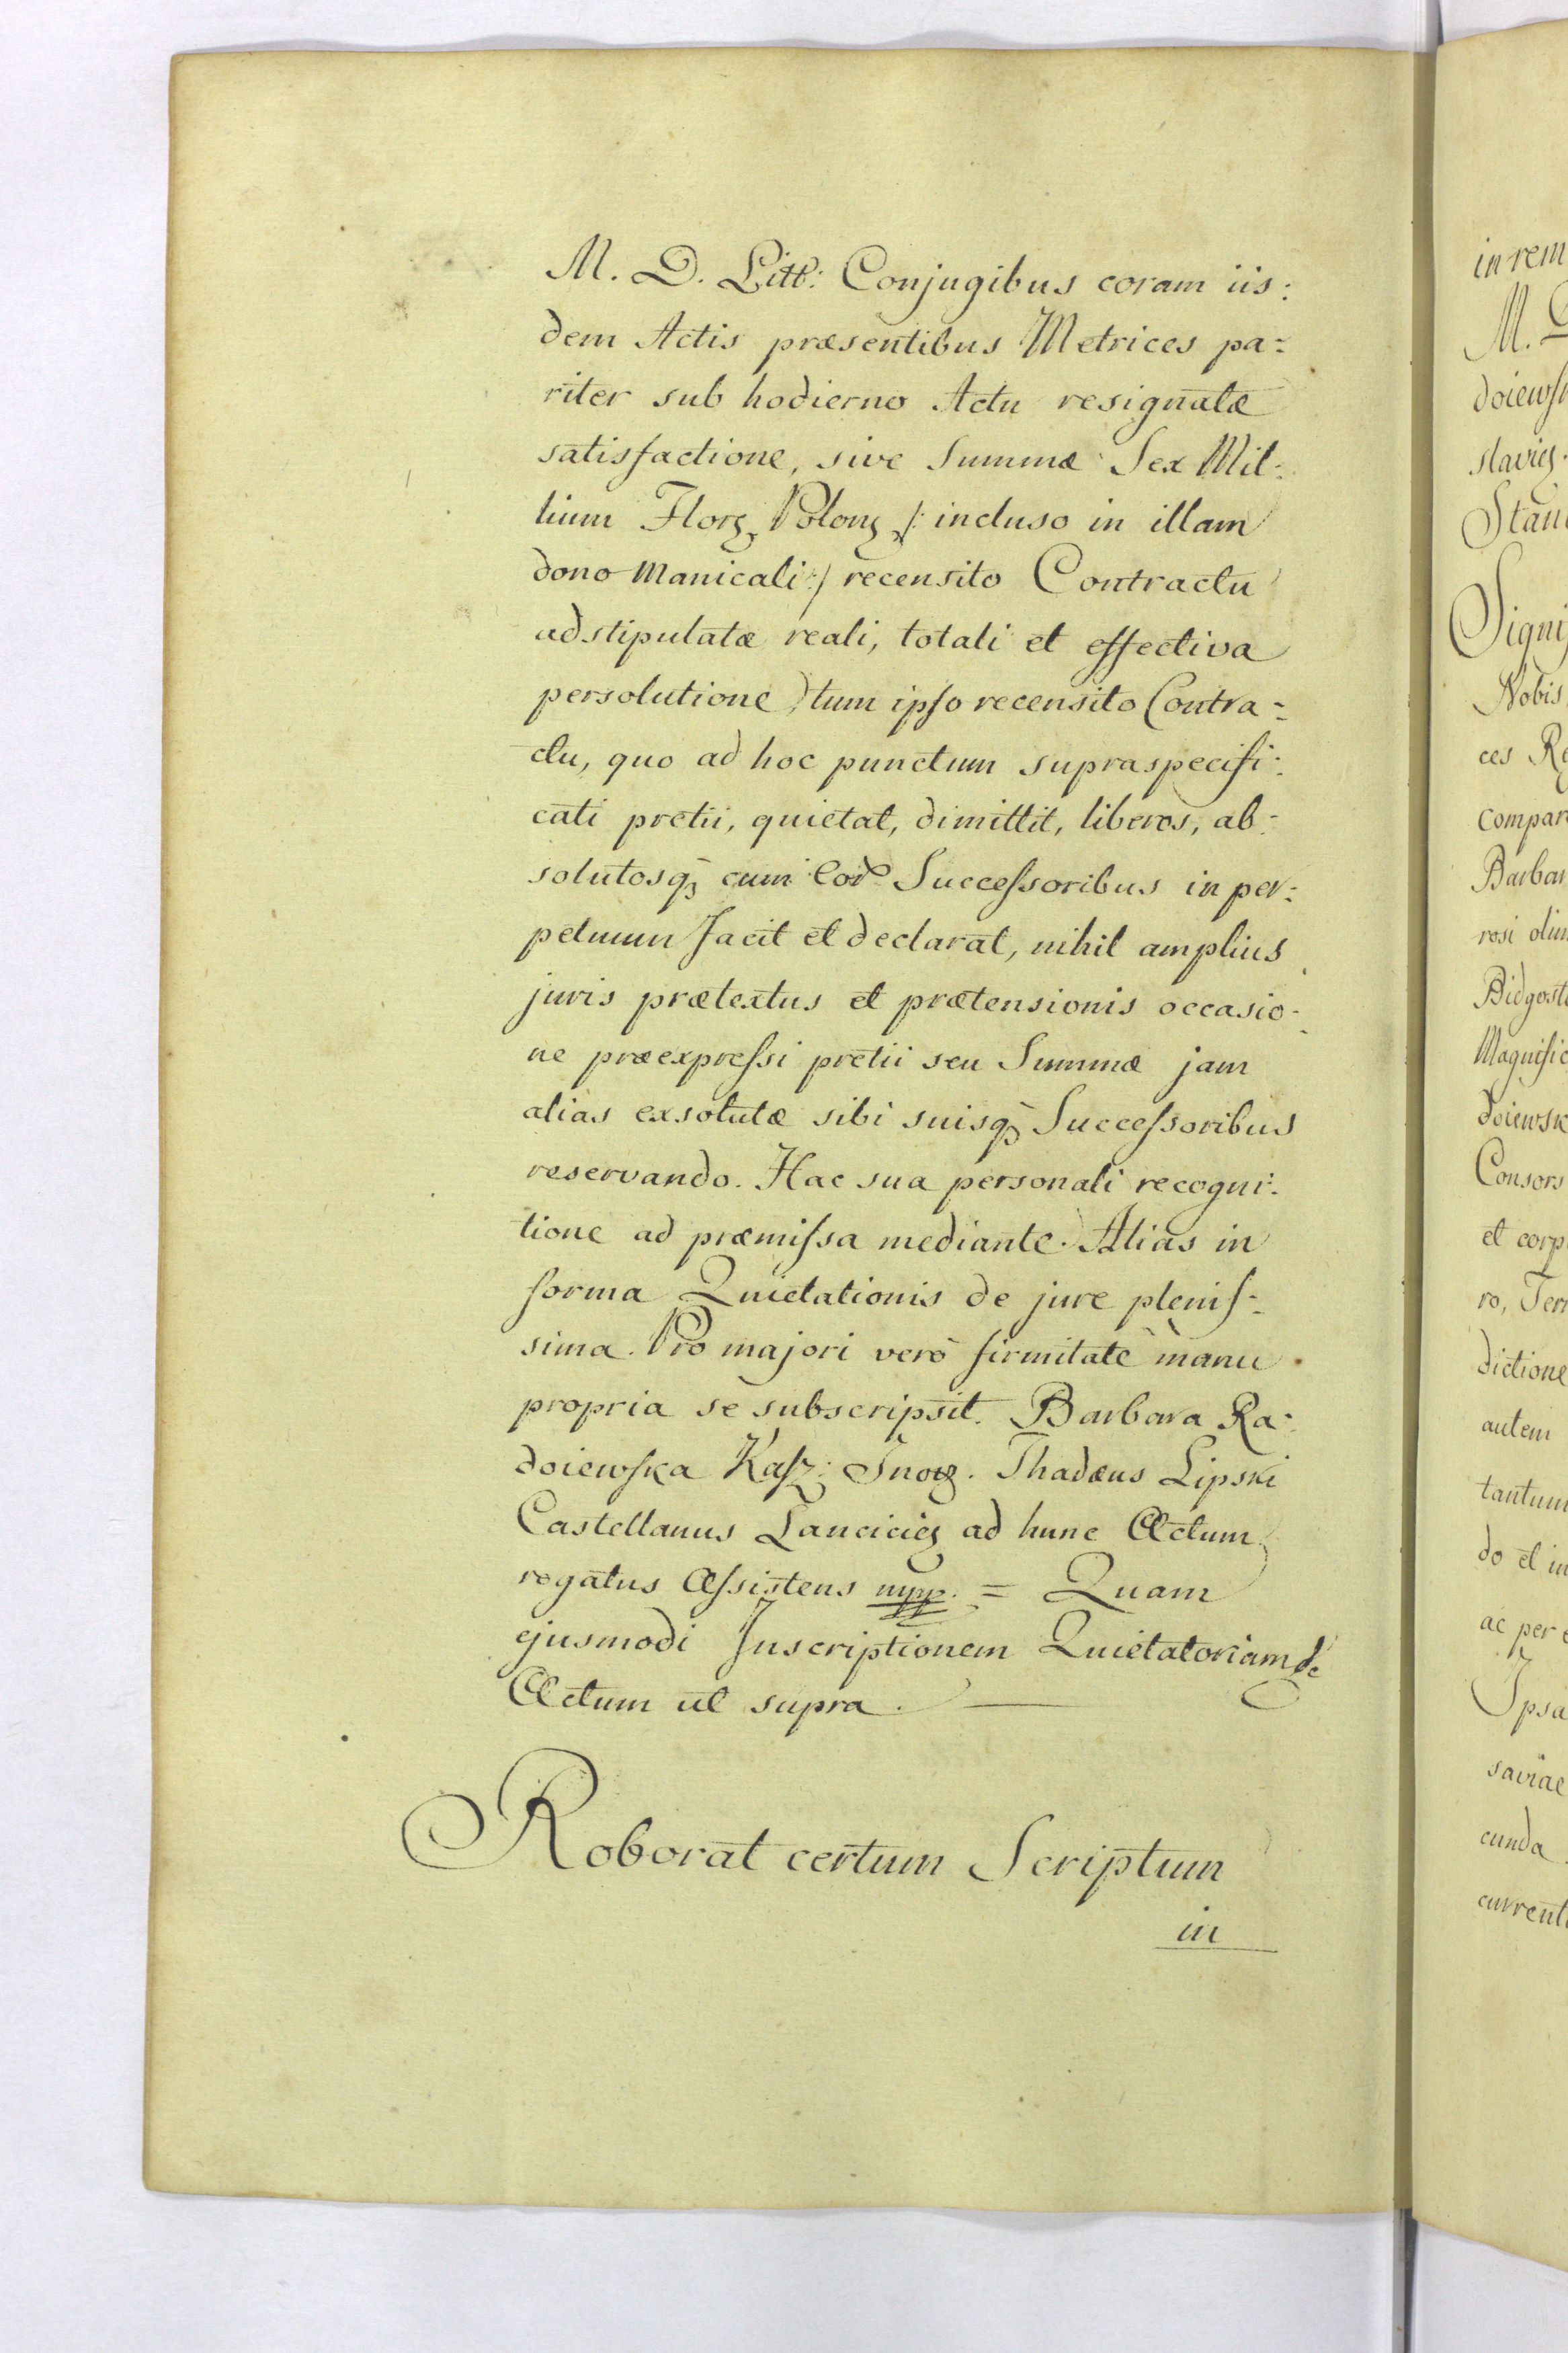 M. D. Litt: Conjugibus coram iis:
dem Actis præsentibus Metrices pa:
riter sub hodierno Actu resignatæ
satisfactione, sive Summæ Sex Mil:
lium Florʒ Polonʒ /: incluso in illam
dono Manicali :/ recensito Contractu
adstipulatæ reali, totali et effectiva
persolutione) tum ipſo recensito Contra:
ctu, quo ad hoc punctum supraspecifi:
cati pretii, quietat, dimittit, liberos, ab:
solutosqʒ cum eod Succeſsoribus in per:
petuum facit et declarat, nihil amplius
juris prætextus et prætensionis occasio:
ne præexpreſsi pretii seu Summæ jam
alias exsolutæ sibi suisqʒ Succeſsoribus
reservando. Hac sua personali recogni:
tione ad præmiſsa mediante. Alias in
forma Quietationis de jure pleniſ:
sima. Pro majori verò firmitate manu
propria se subscripsit. Barbara Ra:
doiewſka Kaſz: Inoʒ. Thadæus Lipski
Castellanus Lancicieʒ ad hunc Actum
rogatus Aſsistens mpp. = Quam
ejusmodi Inscriptionem Quietatoriam &c
Actum ut supra.
Roborat certum Scriptum
in
in rem
M.
doiewſ
slavieʒ
Stan
Nobis
ces
compar
Barbar
rosi olim
Bidgost
Magnific
doiewsk
Consors
et corp
ro, Ter
dictione
autem
tantum
do et in
ac per
Ipsa
saviae
cunda
currenti